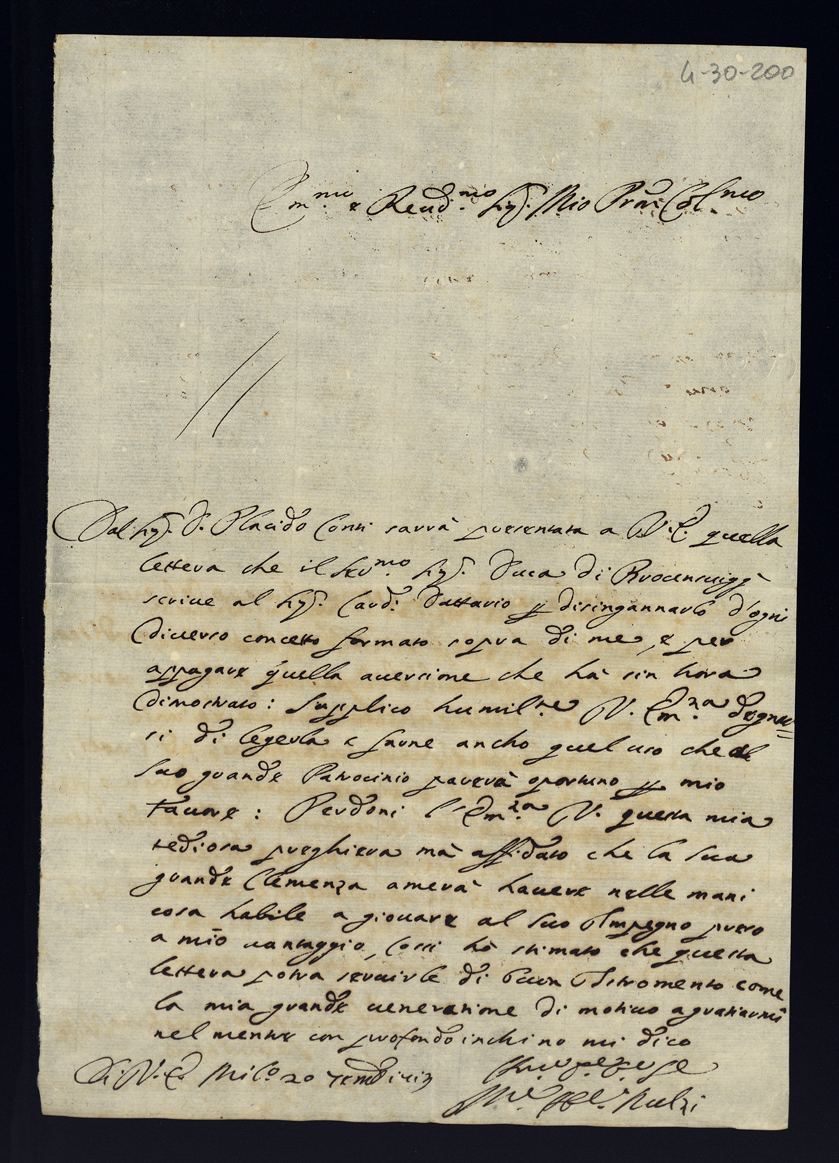 4-30-200
Em.mo e Reud.mo Sig.r Mio Pron Col.mo
Dal Sig.r D. Placido Conti sarrà presentata a V. E. quella
lettera che il Ser.mo Sig.r Duca di
scriue al Sig.r Card. Dattario p disingannarlo d'ogni
diuerso concetto formato sopra di me, e per
appagare quella auersione che hà sin hora
dimostrato: Supplico humil.te V. Em.za degnar=
si di legerla e farne ancho quel uso che al
suo grande Patrocinio parerà oportuno p mio
fauore: Perdoni l'Em.za V. questa mia
tediosa preghiera mà affidato che la sua
grande Clemenza amerà hauere nelle mani
cosa habile a giouare al suo Impegno preso
a mio uantaggio, Cossi hò stimato che questa
lettera potra seruirle di buon Istromento come
la mia grande ueneratione di motiuo a gratiarmi
nel mentre con profondo inchino mi dico
Di V. E. Mil.o 20